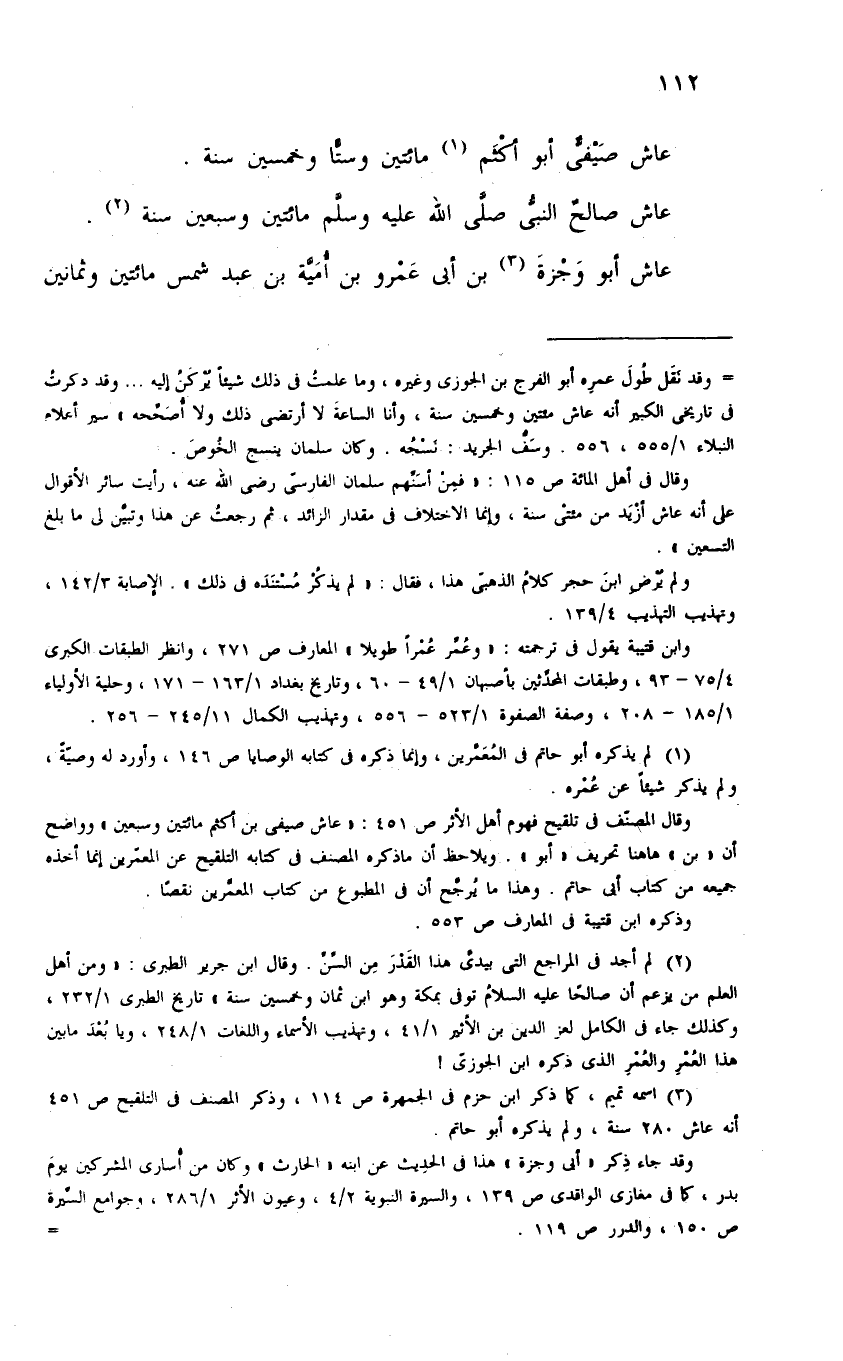 ١١٢
عاش صَيْفىٌّ أبو أكْثَم (١) مائتين وستًّا وخمسين سنة .
عاش صالحٌ النبىُّ صلَّى الله عليه وسلَّم مائتين وسبعين سنة (٢) .
عاش أبو وَجْزةَ (٣) بن أبى عَمْرو بن أُمَيَّة بن عبد شمس مائتين وثمانين
= وقد نَقَل طُولَ عمرِه أبو الفرج بن الجوزى وغيره ، وما علمتُ فى ذلك شيئاً يُرْكَنُ إليه ... وقد ذكرتُ
فى تاريخى الكبير أنه عاش مئتين وخمسين سنة ، وأنا الساعةَ لا أرتضى ذلك ولا أُصَحِّحه » سير أعلام
النبلاء ٥٥٥/١ ، ٥٥٦ . وسَفُّ الجريد : نَسْجُه . وكان سلمان ينسج الخُوصَ .
وقال فى أهل المائة ص ١١٥ : « فمِنْ أسَنِّهم سلمان الفارسىّ رضى الله عنه ، رأيت سائر الأقوال
على أنه عاش أزْيَد من مئتىْ سنة ، وإنما الاختلاف فى مقدار الزائد ، ثم رجعتُ عن هذا وتبيَّن لى ما بلغ
التسعين » .
ولم يُرْضِ ابنَ حجر كلامُ الذهبىّ هذا ، فقال : « لم يذكُرْ مُسْتَنَدَه فى ذلك » . الإصابة ١٤٢/٣ ،
وتهذيب التهذيب ١٣٩/٤ .
وابن قتيبة يقول فى ترجمته : « وعُمِّر عُمْراً طويلا » المعارف ص ٢٧١ ، وانظر الطبقات الكبرى
٧٥/٤ – ٩٣ ، وطبقات المحدِّثين بأصبهان ٤٩/١ – ٦٠ ، وتاريخ بغداد ١٦٣/١ – ١٧١ ، وحلية الأولياء
١٨٥/١ – ٢٠٨ ، وصفة الصفوة ٥٢٣/١ – ٥٥٦ ، وتهذيب الكمال ٢٤٥/١١ – ٢٥٦ .
(١) لم يذكره أبو حاتم فى المُعَمَّرين ، وإنما ذكره فى كتابه الوصايا ص ١٤٦ ، وأورد له وصيّةً ،
ولم يذكر شيئاً عن عُمْره .
وقال المصنّف فى تلقيح فهوم أهل الأثر ص ٤٥١ : « عاش صيفى بن أكثم مائتين وسبعين » وواضح
أن « بن » هاهنا تحريف « أبو » . ويلاحظ أن ماذكره المصنف فى كتابه التلقيح عن المعمّرين إنما أخذه
جميعه من كتاب أبى حاتم . وهذا ما يُرجَّح أن فى المطبوع من كتاب المعمَّرين نقصًا .
وذكره ابن قتيبة فى المعارف ص ٥٥٣ .
(٢) لم أجد فى المراجع التى بيدىّ هذا القَدْرَ مِن السِّنّ . وقال ابن جرير الطبرى : « ومن أهل
العلم من يزعم أن صالحًا عليه السلامُ توفى بمكة وهو ابن ثمان وخمسين سنة » تاريخ الطبرى ٢٣٢/١ ،
وكذلك جاء فى الكامل لعز الدين بن الأثير ٤١/١ ، وتهذيب الأسماء واللغات ٢٤٨/١ ، ويا بُعْدَ مابين
هذا العُمْرِ والعُمْرِ الذى ذكره ابن الجوزىّ !
(٣) اسمه تميم ، كما ذكر ابن حزم فى الجمهرة ص ١١٤ ، وذكر المصنف فى التلقيح ص ٤٥١
أنه عاش ٢٨٠ سنة ، ولم يذكره أبو حاتم .
وقد جاء ذِكر « أبى وجزة » هذا فى الحديث عن ابنه « الحارث » وكان من أُسارى المشركين يومَ
بدر ، كما فى مغازى الواقدى ص ١٣٩ ، والسيرة النبوية ٤/٢ ، وعيون الأثر ٢٨٦/١ ، وجوامع السِّيرة
ص ١٥٠ ، والدرر ص ١١٩ . =